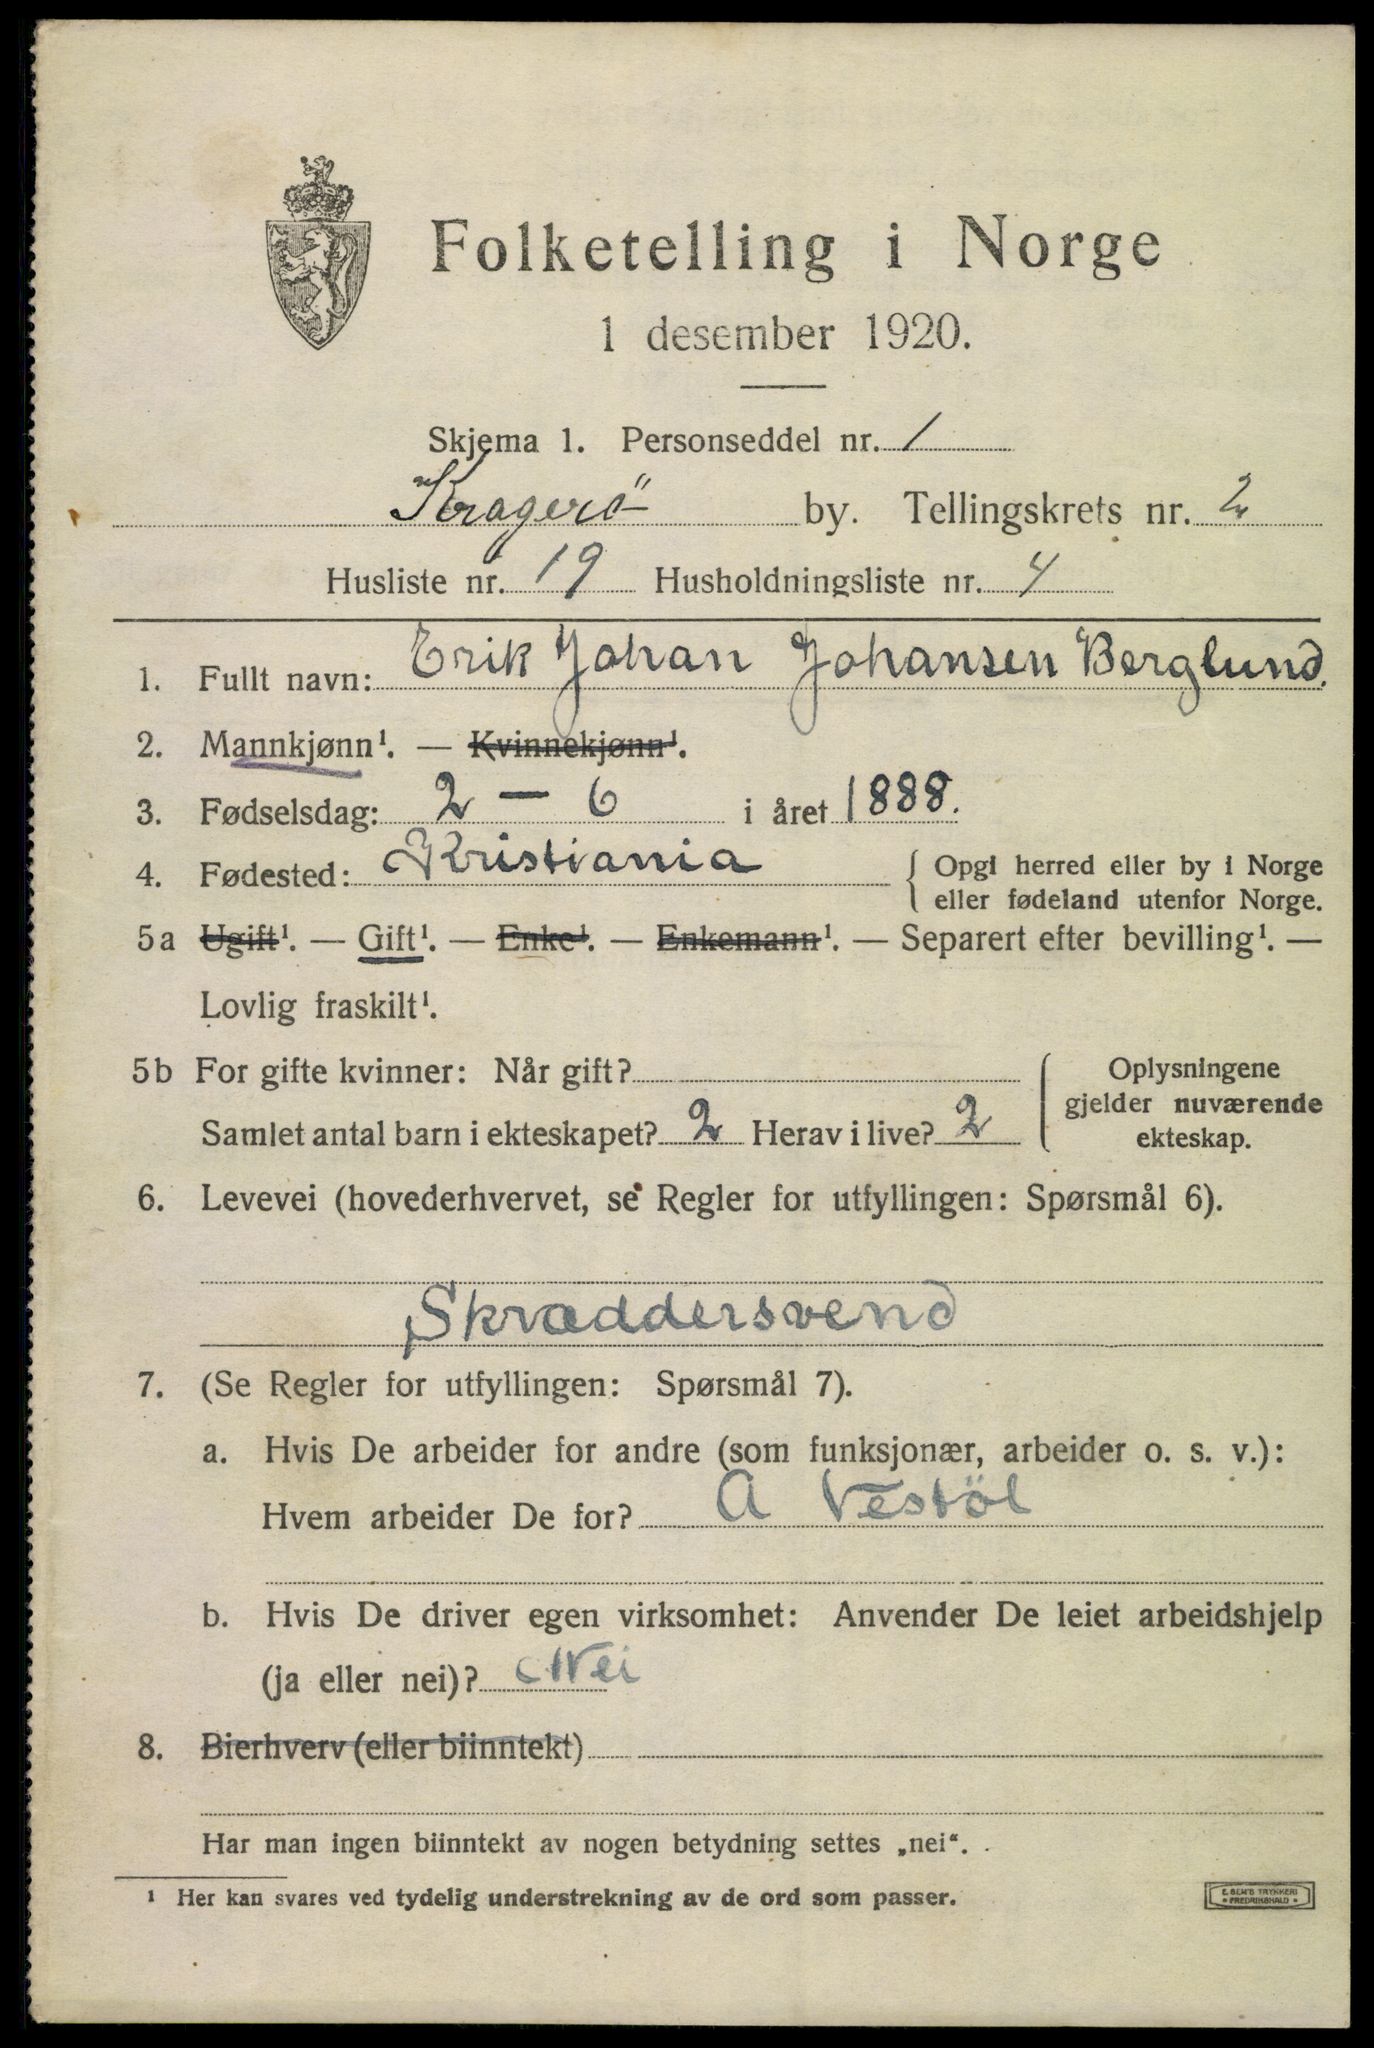 Folketelling i Norge
1 desember 1920.
Skjema 1. Personseddel nr. 1
Kragerö by. Tellingskrets nr. 2
Husliste nr. 19 Husholdningsliste nr. 4
1. Fullt navn: Erik Johan Johansen Berglund.
2. Mannkjønn¹. — Kvinnekjønn¹.
3. Fødselsdag: 2 — 6 i året 1888.
4. Fødested: Kristiania { Opgi herred eller by i Norge
eller fødeland utenfor Norge.
5a Ugift¹. — Gift¹. — Enke¹. — Enkemann¹. — Separert efter bevilling¹. —
Lovlig fraskilt¹.
5b For gifte kvinner: Når gift? { Oplysningene
gjelder nuværende
Samlet antal barn i ekteskapet? 2 Herav i live? 2 ekteskap.
6. Levevei (hovederhvervet, se Regler for utfyllingen: Spørsmål 6).
Skræddersvend
7. (Se Regler for utfyllingen: Spørsmål 7).
a. Hvis De arbeider for andre (som funksjonær, arbeider o. s. v.):
Hvem arbeider De for? A Vestöl
b. Hvis De driver egen virksomhet: Anvender De leiet arbeidshjelp
(ja eller nei)? Nei
8. Bierhverv (eller biinntekt)
Har man ingen biinntekt av nogen betydning settes „nei“.
¹ Her kan svares ved tydelig understrekning av de ord som passer.
E. SEM'S TRYKKERI
• FREDRIKSHALD •